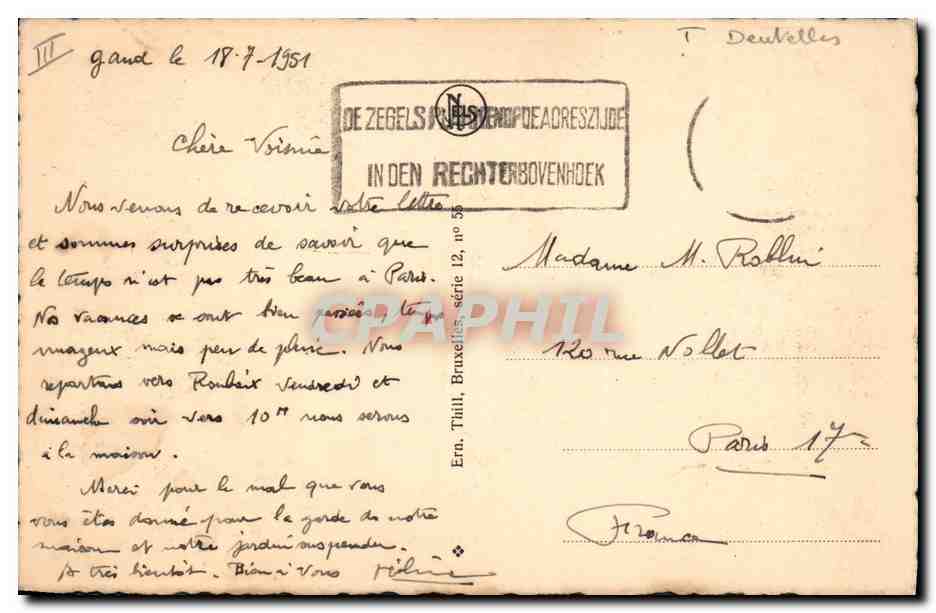 III
Gand le 18-7-1951
T Dentelles
NELS
DE ZEGELS BOVENOP DE ADRESZIJDE
IN DEN RECHTERBOVENHOEK
Chère Voisine
Nous venons de recevoir votre lettre
et sommes surprises de savoir que
le temps n'est pas très beau à Paris.
Nos vacances se sont bien passées, temps
nuageux mais peu de pluie. Nous
repartons vers Roubaix Vendredi et
dimanche soir vers 10H nous serons
à la maison.
Merci pour le mal que vous
vous êtes donné pour la garde de notre
maison et notre jardin suspendu.
A très bientôt. Bien à Vous
Ern. Thill, Bruxelles, série 12, n° 55
CPAPHIL
Madame M. Rollin
120 rue Nollet
Paris 17e
France